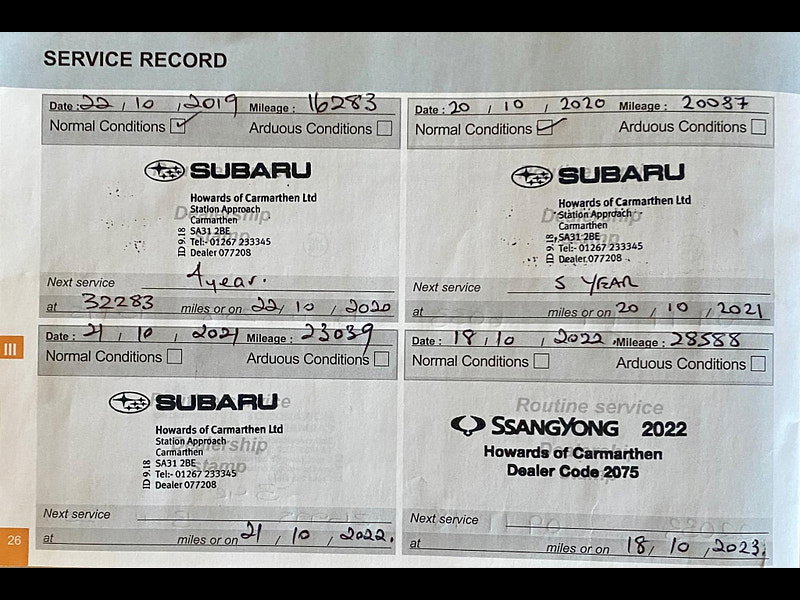 SERVICE RECORD
Date : 22 / 10 / 2019 Mileage : 16283
Normal Conditions ✓ Arduous Conditions
SUBARU
Howards of Carmarthen Ltd
Station Approach
Carmarthen
SA31 2BE
Tel:- 01267 233345
Dealer 077208
ID 9.18
Dealership
stamp
Next service 4 year.
at 32283 miles or on 22/ 10 / 2020
Date : 20 / 10 / 2020 Mileage : 20087
Normal Conditions ✓ Arduous Conditions
SUBARU
Howards of Carmarthen Ltd
Station Approach
Carmarthen
SA31 2BE
Tel:- 01267 233345
Dealer 077208
ID 9.18
Dealership
stamp
Next service 5 YEAR
at miles or on 20 / 10 / 2021
III
Date : 21 / 10 / 2021 Mileage : 23039
Normal Conditions Arduous Conditions
SUBARU
Howards of Carmarthen Ltd
Station Approach
Carmarthen
SA31 2BE
Tel:- 01267 233345
Dealer 077208
ID 9.18
Dealership
stamp
Next service
at miles or on 21 / 10 / 2022.
Date : 18 / 10 / 2022 Mileage : 28588
Normal Conditions Arduous Conditions
Routine service
SSANGYONG 2022
Howards of Carmarthen
Dealer Code 2075
Next service
at miles or on 18/ 10 / 2023.
26